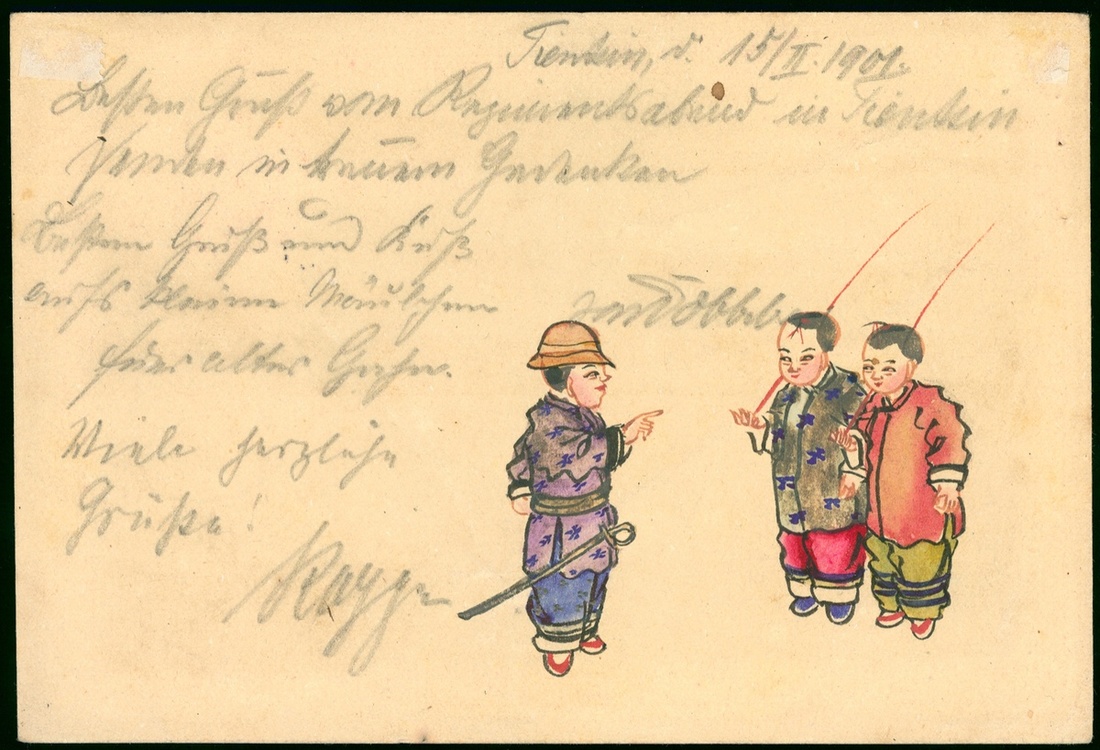 Tientsin, d. 15/II. 1901.
Besten Gruß vom Regimentsabend in Tientsin
senden in treuem Gedenken
Besten Gruß und Kuß
aufs kleine Mäulchen
alter
Viele herzliche
Grüße!